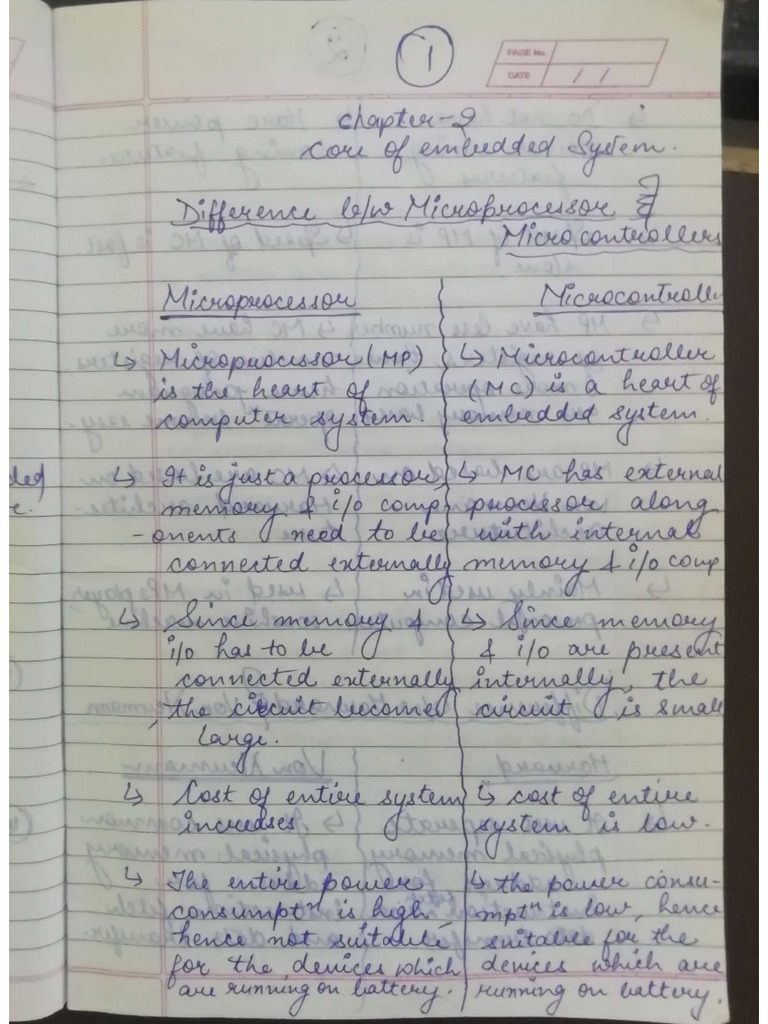 1
PAGE No.
DATE / /
Chapter-2
Core of embedded System.
Difference b/w Microprocessor &
Microcontrollers
Microprocessor
↳ Microprocessor (MP)
is the heart of
computer system.
↳ It is just a processor,
memory & i/o comp
-onents need to be
connected externally
↳ Since memory &
i/o has to be
connected externally
, the circuit become
large.
↳ Cost of entire system
increases.
↳ The entire power
consumptⁿ is high,
hence not suitable
for the devices which
are running on battery.
Microcontroll
↳ Microcontroller
(MC) is a heart of
embedded system.
↳ MC has external
processor along
with internal
memory & i/o comp
↳ Since memory
& i/o are present
internally, the
circuit is small
↳ cost of entire
system is low.
↳ the power consu-
mptⁿ is low, hence
suitable for the
devices which are
running on battery.